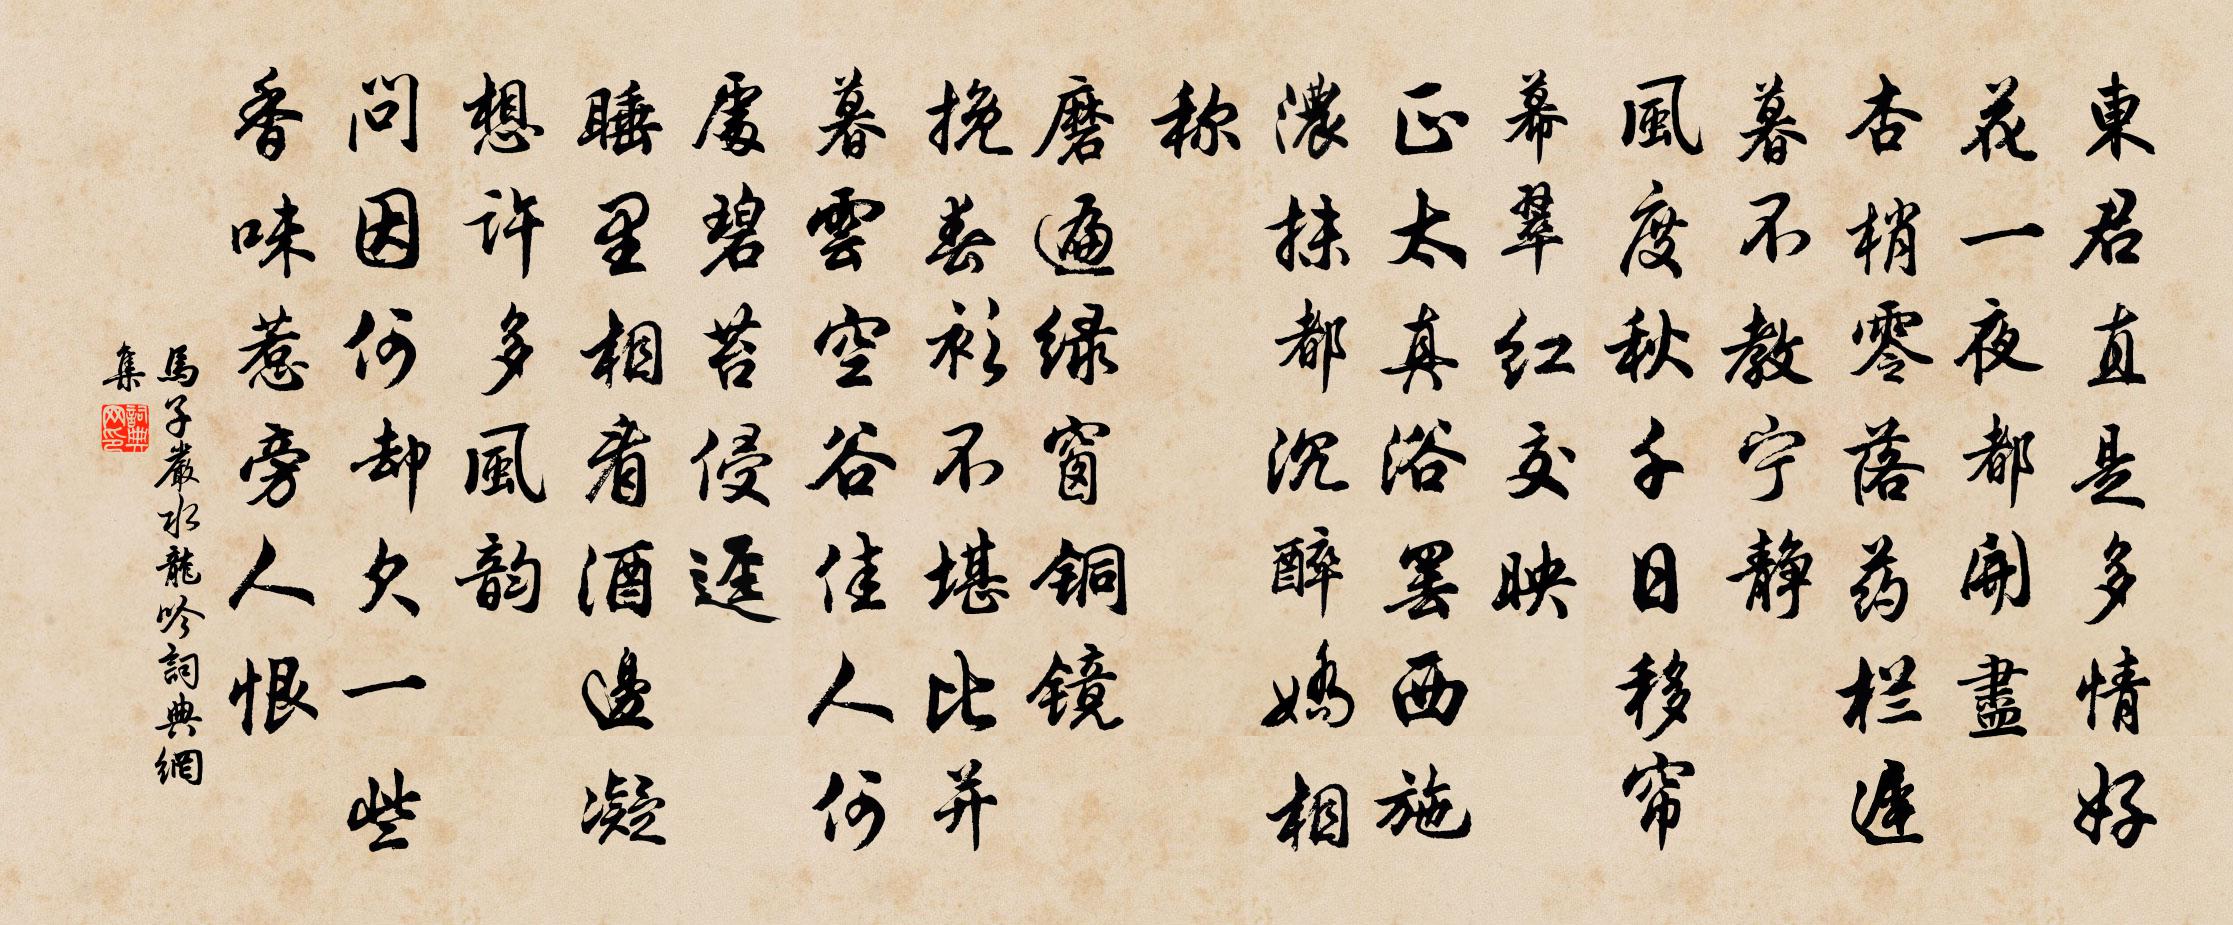 東君直是多情好
花一夜都開盡
杏梢零落药栏遲
暮不教宁静
風度秋千日移帘
幕翠红交映
正太真浴罢西施
濃抹都沉醉嬌相
称
磨遍绿窗铜镜
挽春衫不堪比并
暮雲空谷佳人何
處碧苔侵逕
睡里相看酒邊凝
想许多風韵
问因何却欠一些
香味惹旁人恨
馬子嚴水龍吟詞典網
集
詞典
网印